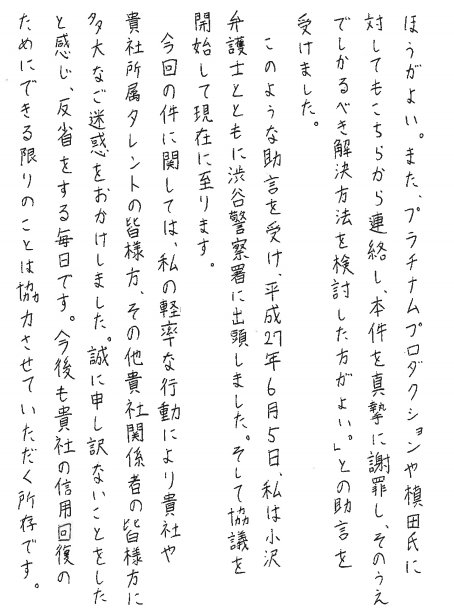 ほうがよい。また、プラチナムプロダクションや槙田氏に
対してもこちらから連絡し、本件を真摯に謝罪し、そのうえ
でしかるべき解決方法を検討した方がよい。」との助言を
受けました。
このような助言を受け、平成27年6月5日、私は小沢
弁護士とともに渋谷警察署に出頭しました。そして協議を
開始して現在に至ります。
今回の件に関しては、私の軽率な行動により貴社や
貴社所属タレントの皆様方、その他貴社関係者の皆様方に
多大なご迷惑をおかけしました。誠に申し訳ないことをした
と感じ、反省をする毎日です。今後も貴社の信用回復の
ためにできる限りのことは協力させていただく所存です。